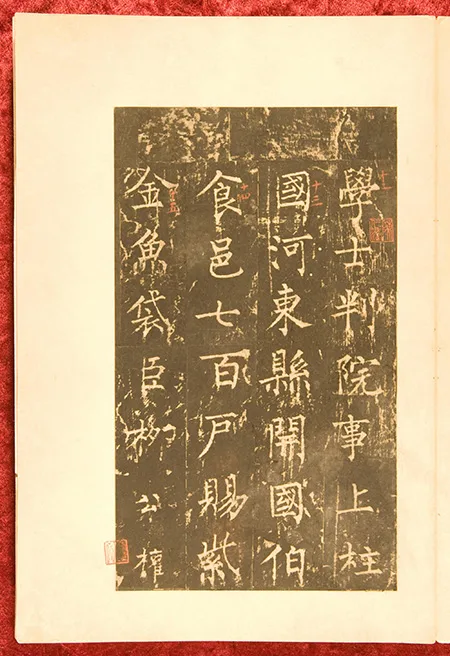 學士判院事上柱
國河東縣開國伯
食邑七百戶賜紫
金魚袋臣柳公權
十三
十四